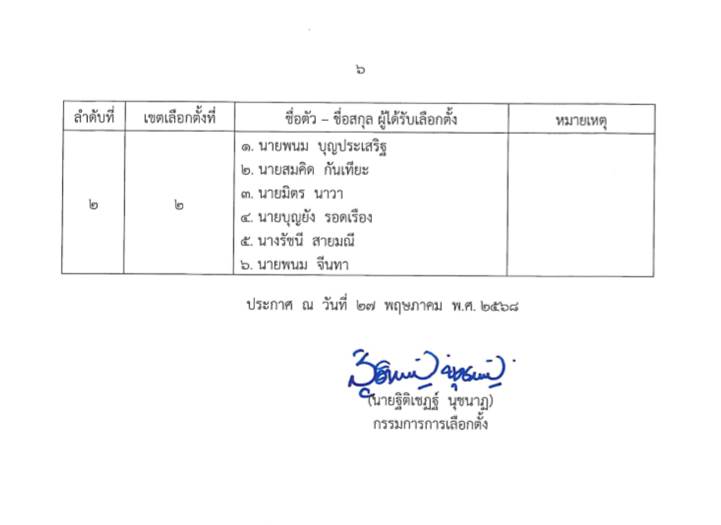 ๖
ลำดับที่ เขตเลือกตั้งที่ ชื่อตัว – ชื่อสกุล ผู้ได้รับเลือกตั้ง หมายเหตุ
๒ ๒
๑. นายพนม บุญประเสริฐ
๒. นายสมคิด กันเทียะ
๓. นายมิตร นาวา
๔. นายบุญยัง รอดเรือง
๕. นางรัชนี สายมณี
๖. นายพนม จีนทา
ประกาศ ณ วันที่ ๒๗ พฤษภาคม พ.ศ. ๒๕๖๘
(นายฐิติเชฏฐ์ นุชนาฏ)
กรรมการการเลือกตั้ง